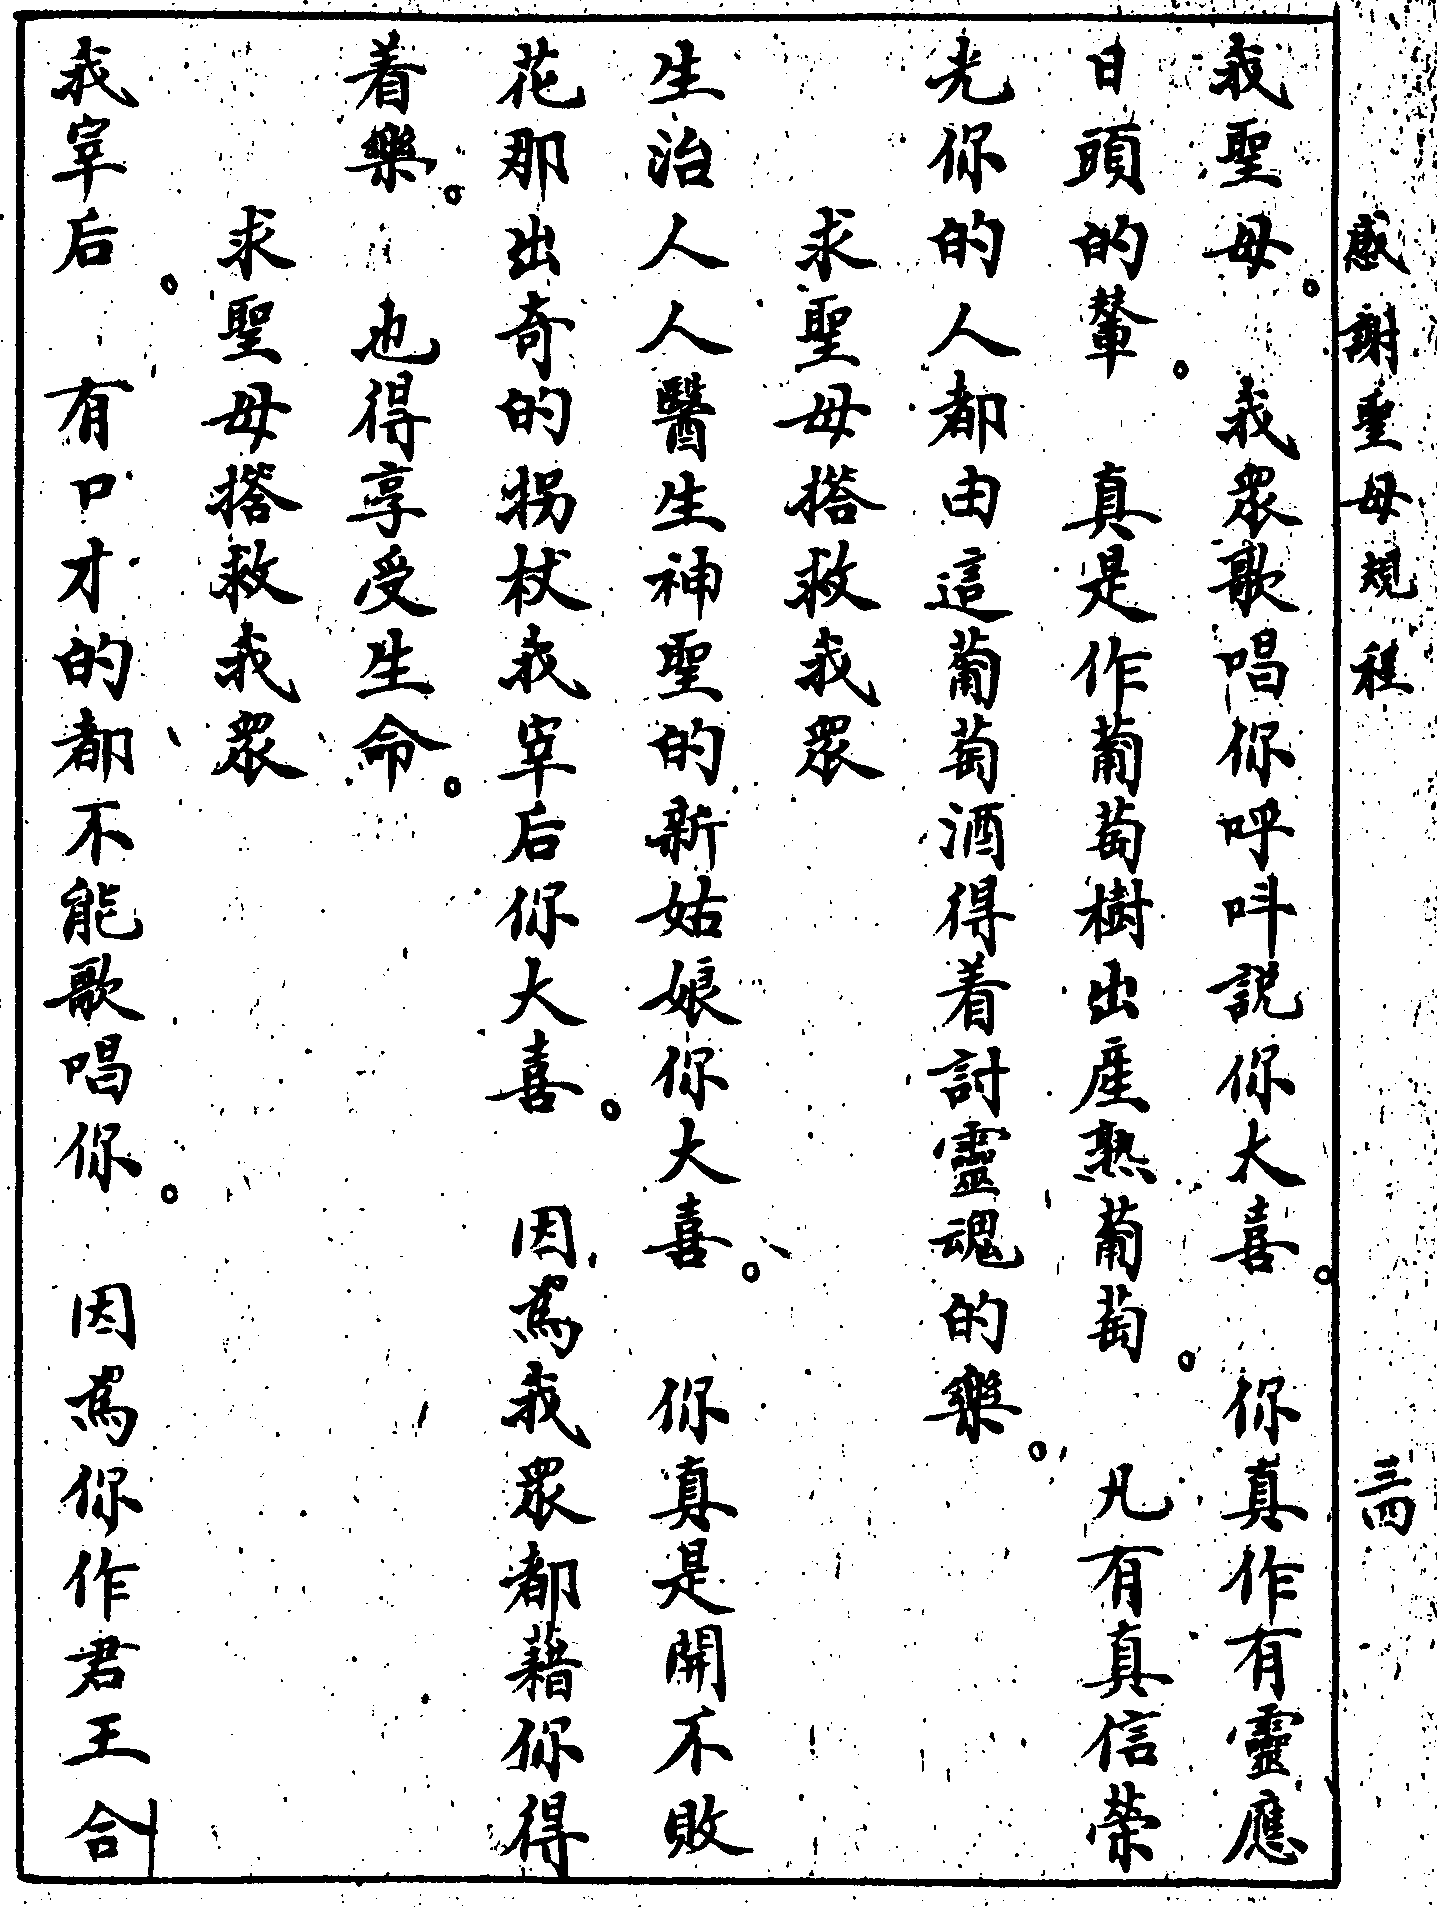 感謝聖母規程 三四
我聖母。 我眾歌唱你呼呌説你大喜。 你真作有靈應
日頭的輦。 真是作葡萄樹出產熟葡萄。 凡有真信榮
光你的人都由這葡萄酒得着討靈魂的樂。
求聖母搭救我眾
生治人人醫生神聖的新姑娘你大喜。 你真是開不敗
花那出奇的拐杖我宰后你大喜。 因為我眾都藉你得
着樂。 也得享受生命。
求聖母搭救我眾
我宰后。 有口才的都不能歌唱你。 因為你作君王合